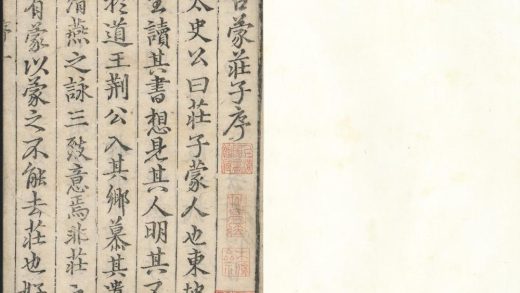 古蒙莊子序
太史公曰莊子蒙人也東坡
至讀其書想見其人明其
於道王荊公入其鄉慕其遺
清燕之詠三致意焉非莊之
有蒙以蒙之不能去莊也好
序一